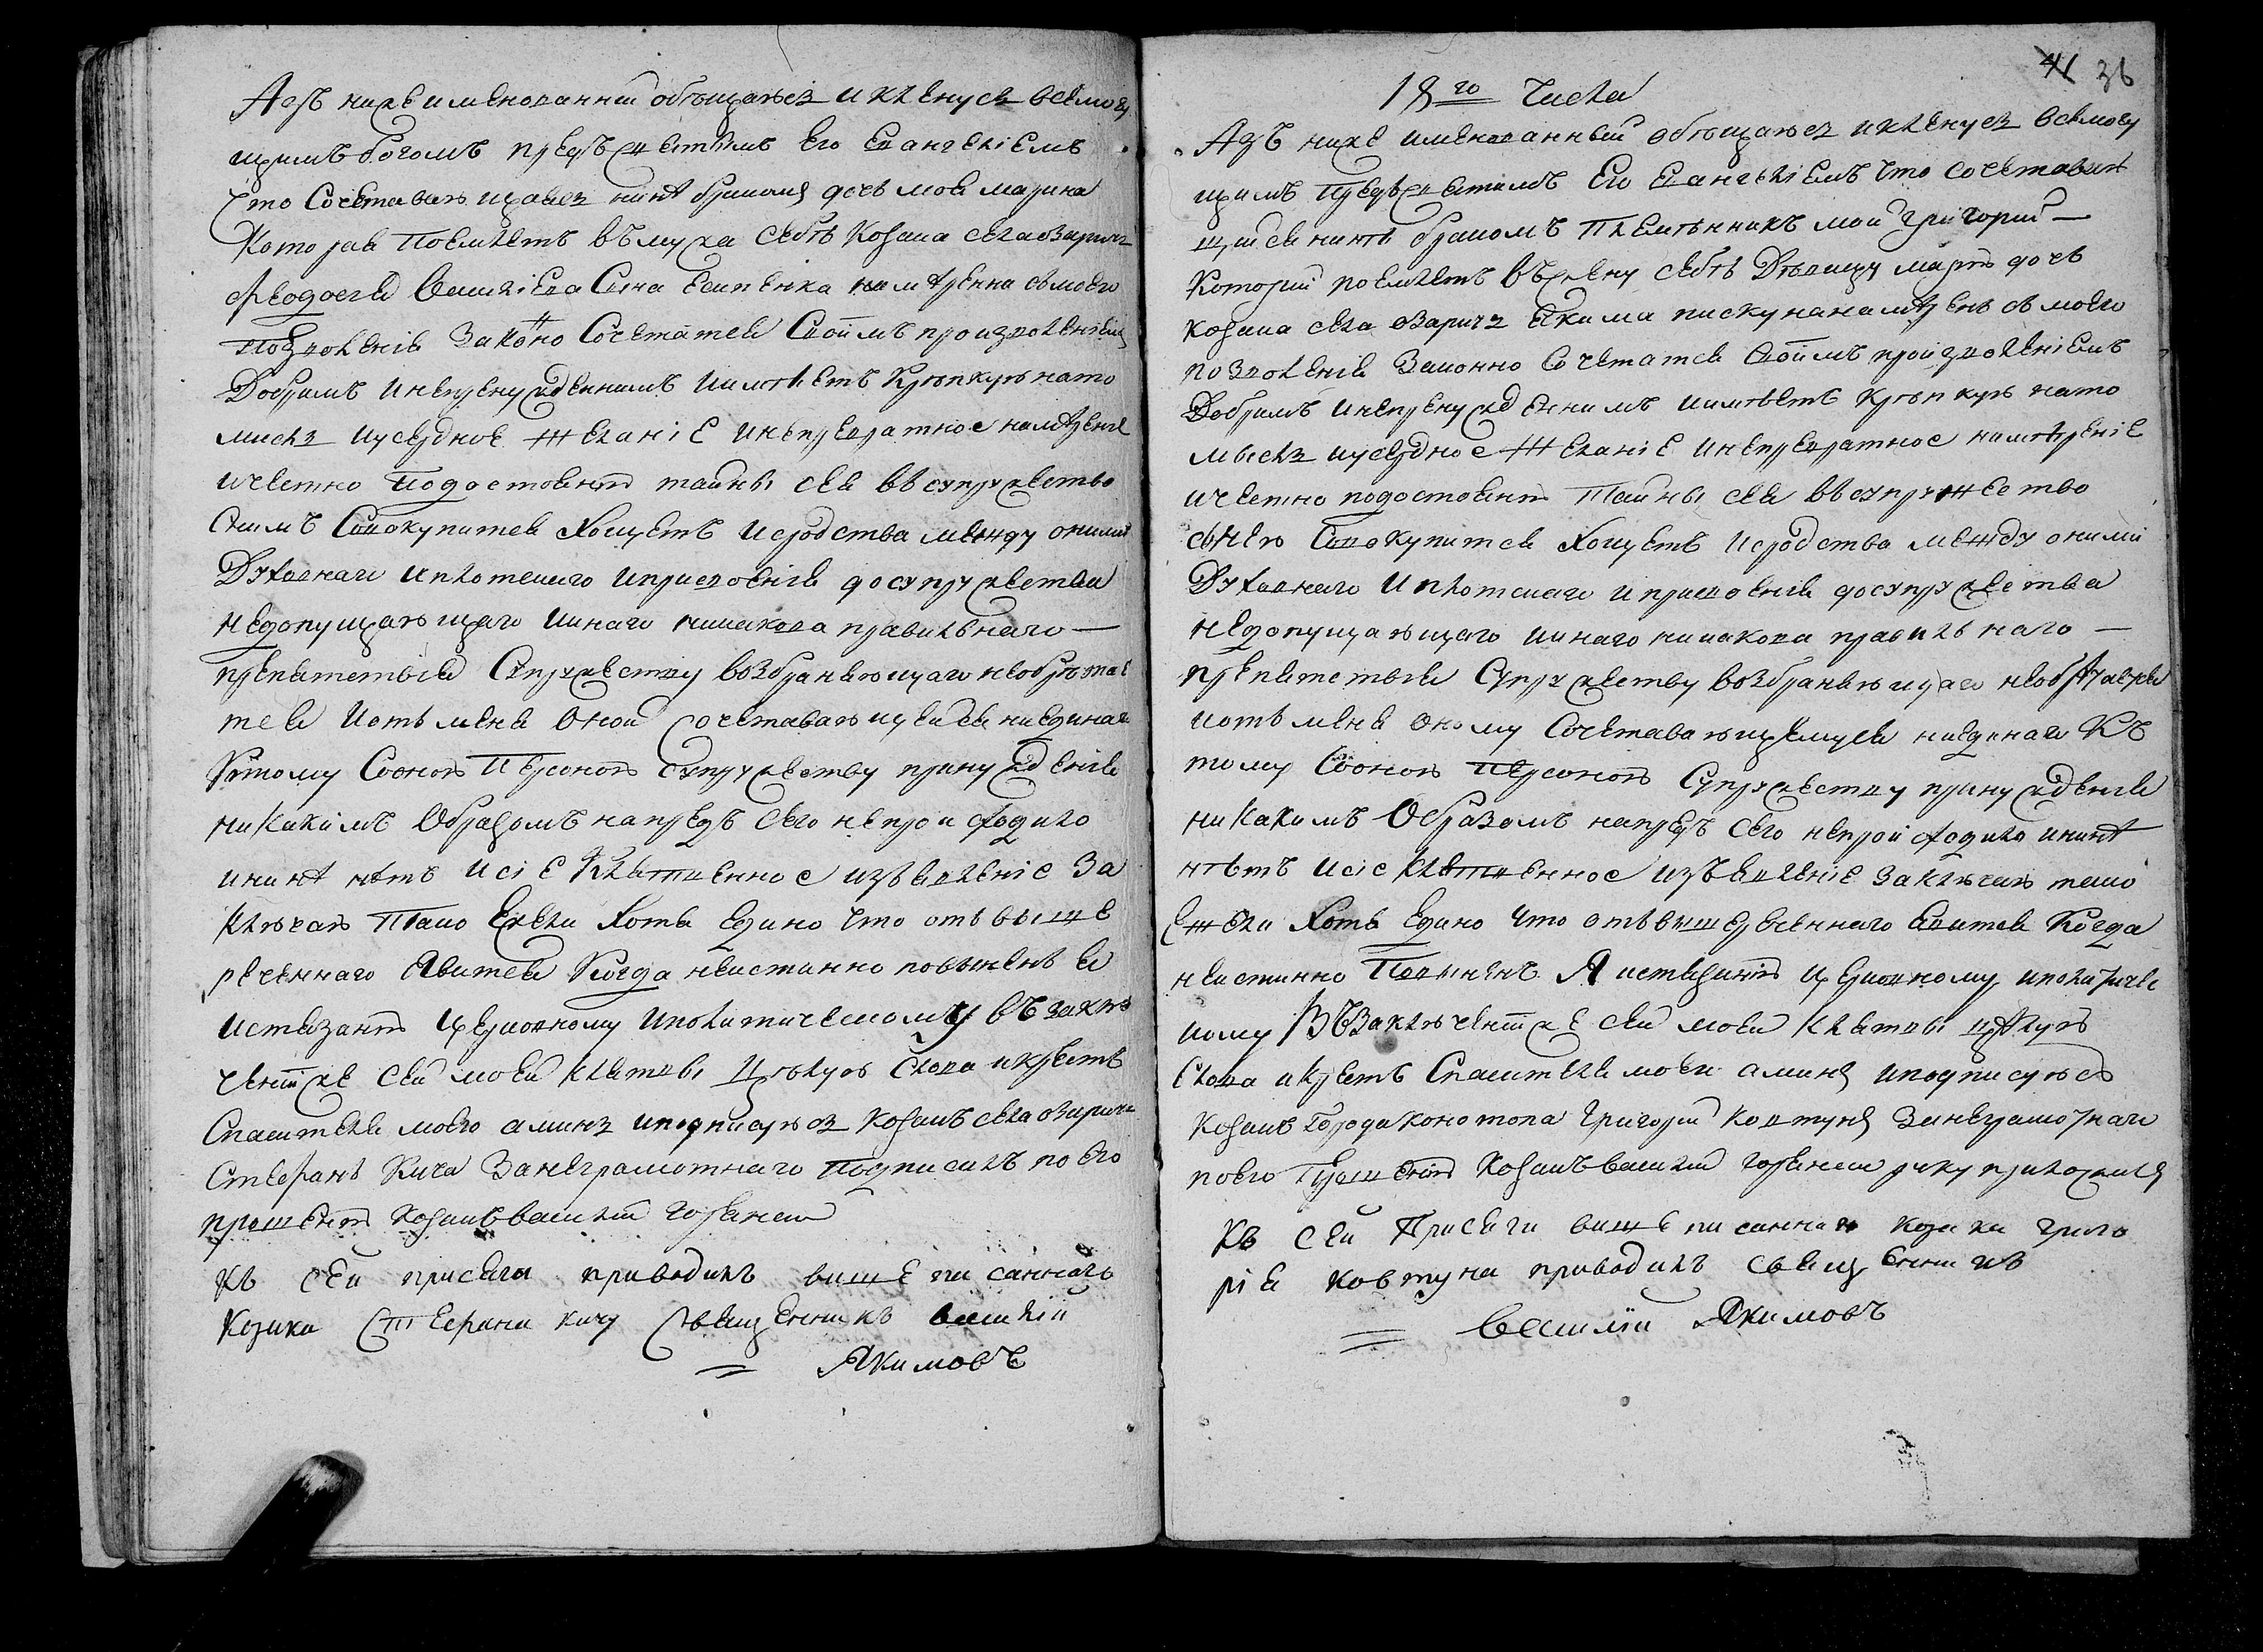 Азъ нижеименованний обѣщаюсь и кленусь всемогу
щимъ богомъ предъ святимъ Его Евангелиемъ
что сочетаваюшаясь нинѣ бракомъ дочь моя марина
Которая поемлетъ въ мужа себѣ козака села озаричъ
феодосия василиева сина есипенка намѣренна с моего
позволения законно сочетатся своимъ произволениемъ
Добримъ и непренужденнимъ и имѣетъ крѣпкую на то
мисль и усердное желание и непревратное намѣрение
и честно по достоянию тайны сея в супружество
с нимъ совокупится хощетъ и сродства между оними
Духовнаго и плотскаго и присвоения до супружества
недопущающаго и инаго никакова правильнаго —
препятствия супружеству возбраняющаго необрѣтае
тся и отъ мене оной сочетавающейся ниединаго
к тому с оною персоною супружеству принуждения
никакимъ образомъ напредъ сего непроисходило
и нинѣ нѣтъ и сие клятвенное изъявление за
ключаю тако ежели хотя едино что отъ више
реченнаго явится когда неистинно повиненъ я
истязанию церковному и политическому въ заклю
чение же сей моей клятвы цѣлую слова и крестъ
Спасителя моего аминь и подписуюсь козакъ села озаричъ
Стефанъ Кича за неграмотнаго подписалъ по его
прошению козакъ василий
Къ сей присяги приводилъ вишеписанного
козака Стефана кичу священникъ василий
Якимовъ
36
18го числа
Азъ нижеименованный обѣщаюсь и кленусь всемогу
щимъ предъ святимъ Его Евангелиемъ что сочетаваю
щийся нинѣ бракомъ племянникъ мой григорий —
Которий поемлетъ въ жену себѣ дѣвицу марию дочь
козака села озаричъ якима пискуна намѣренъ с моего
позволения законно сочетатся своимъ произволениемъ
Добримъ и непренужденнимъ и имѣетъ крѣпкую на то
мысль и усердное желание и непревратное намѣрение
и честно по достоянию тайны сея в супружество
с нею совокупится хощетъ и сродства между оними
Духовнаго и плотскаго и присвоения до супружества
недопущающаго и инаго никакова правильнаго —
препятствия супружеству возбраняющаго необрѣтается
и отъ мене оному сочетавающемуся ниединаго къ
тому с оною персоною супружеству принуждения
никакимъ образомъ напредъ сего непроисходило и нинѣ
нѣтъ и сие клятвенное изъявление заключаю тако
ежели хотя едино что отъ вишереченнаго явится когда
неистинно повиненъ я истязанию церковному и политиче
скому въ заключение же сей моей клятвы цѣлую
слова и крестъ Спасителя моего аминь и подписуюсь
козакъ города конотопа григорий ковтунъ за неграмотнаго
по его прошению козакъ василий руку приложилъ
Къ сей присяги вишеписанного козака григо
рія ковтуна приводилъ священникъ
василій Якимовъ